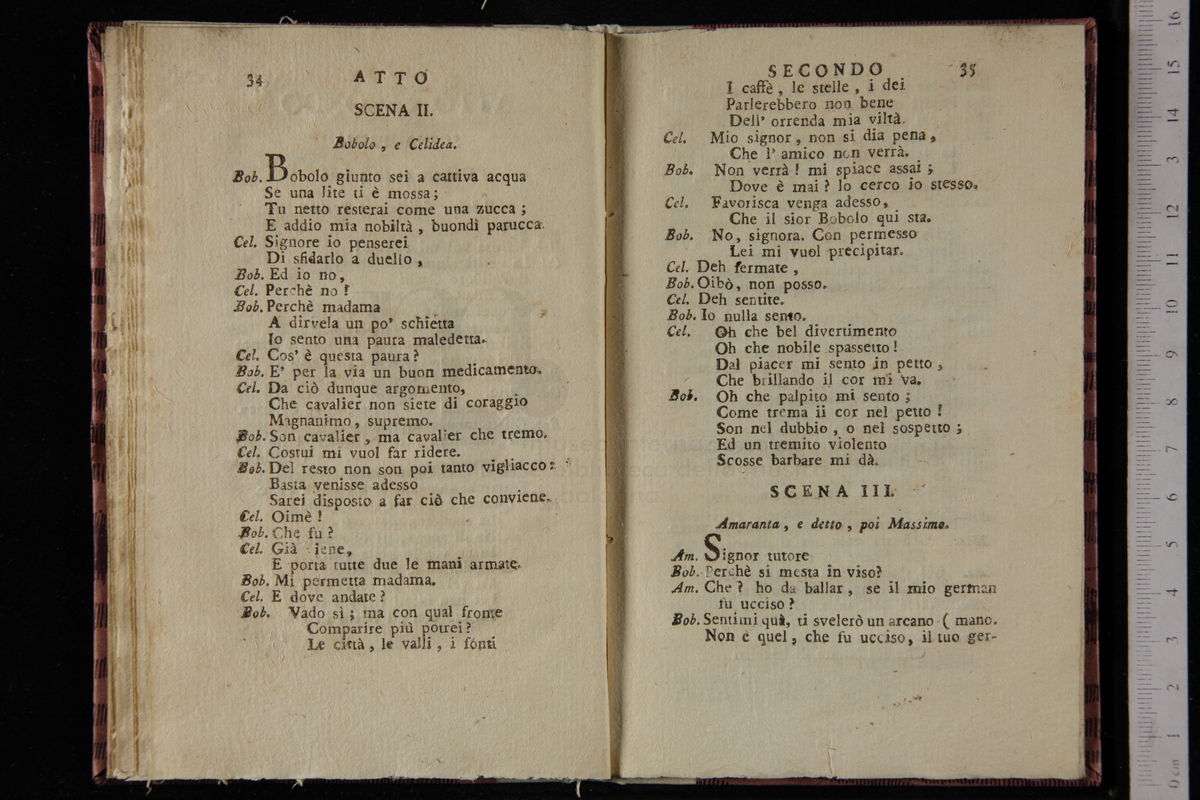 34 ATTO
SCENA II.
Bobolo, e Celidea.
Bob. Bobolo giunto sei a cattiva acqua
Se una lite ti è mossa;
Tu netto resterai come una zucca;
E addio mia nobiltà, buondì parucca.
Cel. Signore io penserei
Di sfidarlo a duello,
Bob. Ed io no,
Cel. Perchè no!
Bob. Perchè madama
A dirvela un po' schietta
Io sento una paura maledetta.
Cel. Cos' è questa paura?
Bob. E' per la via un buon medicamento.
Cel. Da ciò dunque argomento,
Che cavalier non siete di coraggio
Magnanimo, supremo.
Bob. Son cavalier, ma cavalier che tremo.
Cel. Costui mi vuol far ridere.
Bob. Del resto non son poi tanto vigliacco:
Basta venisse adesso
Sarei disposto a far ciò che conviene.
Cel. Oimè!
Bob. Che fu?
Cel. Già iene,
E porta tutte due le mani armate.
Bob. Mi permetta madama.
Cel. E dove andate?
Bob. Vado sì; ma con qual fronte
Comparire più potrei?
Le città, le valli, i fonti
SECONDO 35
I caffè, le stelle, i dei
Parlerebbero non bene
Dell' orrenda mia viltà.
Cel. Mio signor, non si dia pena,
Che l' amico non verrà.
Bob. Non verrà! mi spiace assai;
Dove è mai? lo cerco io stesso.
Cel. Favorisca venga adesso,
Che il sior Bobolo qui sta.
Bob. No, signora. Con permesso
Lei mi vuol precipitar.
Cel. Deh fermate,
Bob. Oibò, non posso.
Cel. Deh sentite.
Bob. Io nulla sento.
Cel. Oh che bel divertimento
Oh che nobile spassetto!
Dal piacer mi sento in petto,
Che brillando il cor mi va.
Bob. Oh che palpito mi sento;
Come trema il cor nel petto!
Son nel dubbio, o nel sospetto;
Ed un tremito violento
Scosse barbare mi dà.
SCENA III.
Amaranta, e detto, poi Massimo.
Am. Signor tutore
Bob. Perchè si mesta in viso?
Am. Che? ho da ballar, se il mio german
fu ucciso?
Bob. Sentimi quà, ti svelerò un arcano ( mano.
Non è quel, che fu ucciso, il tuo ger-